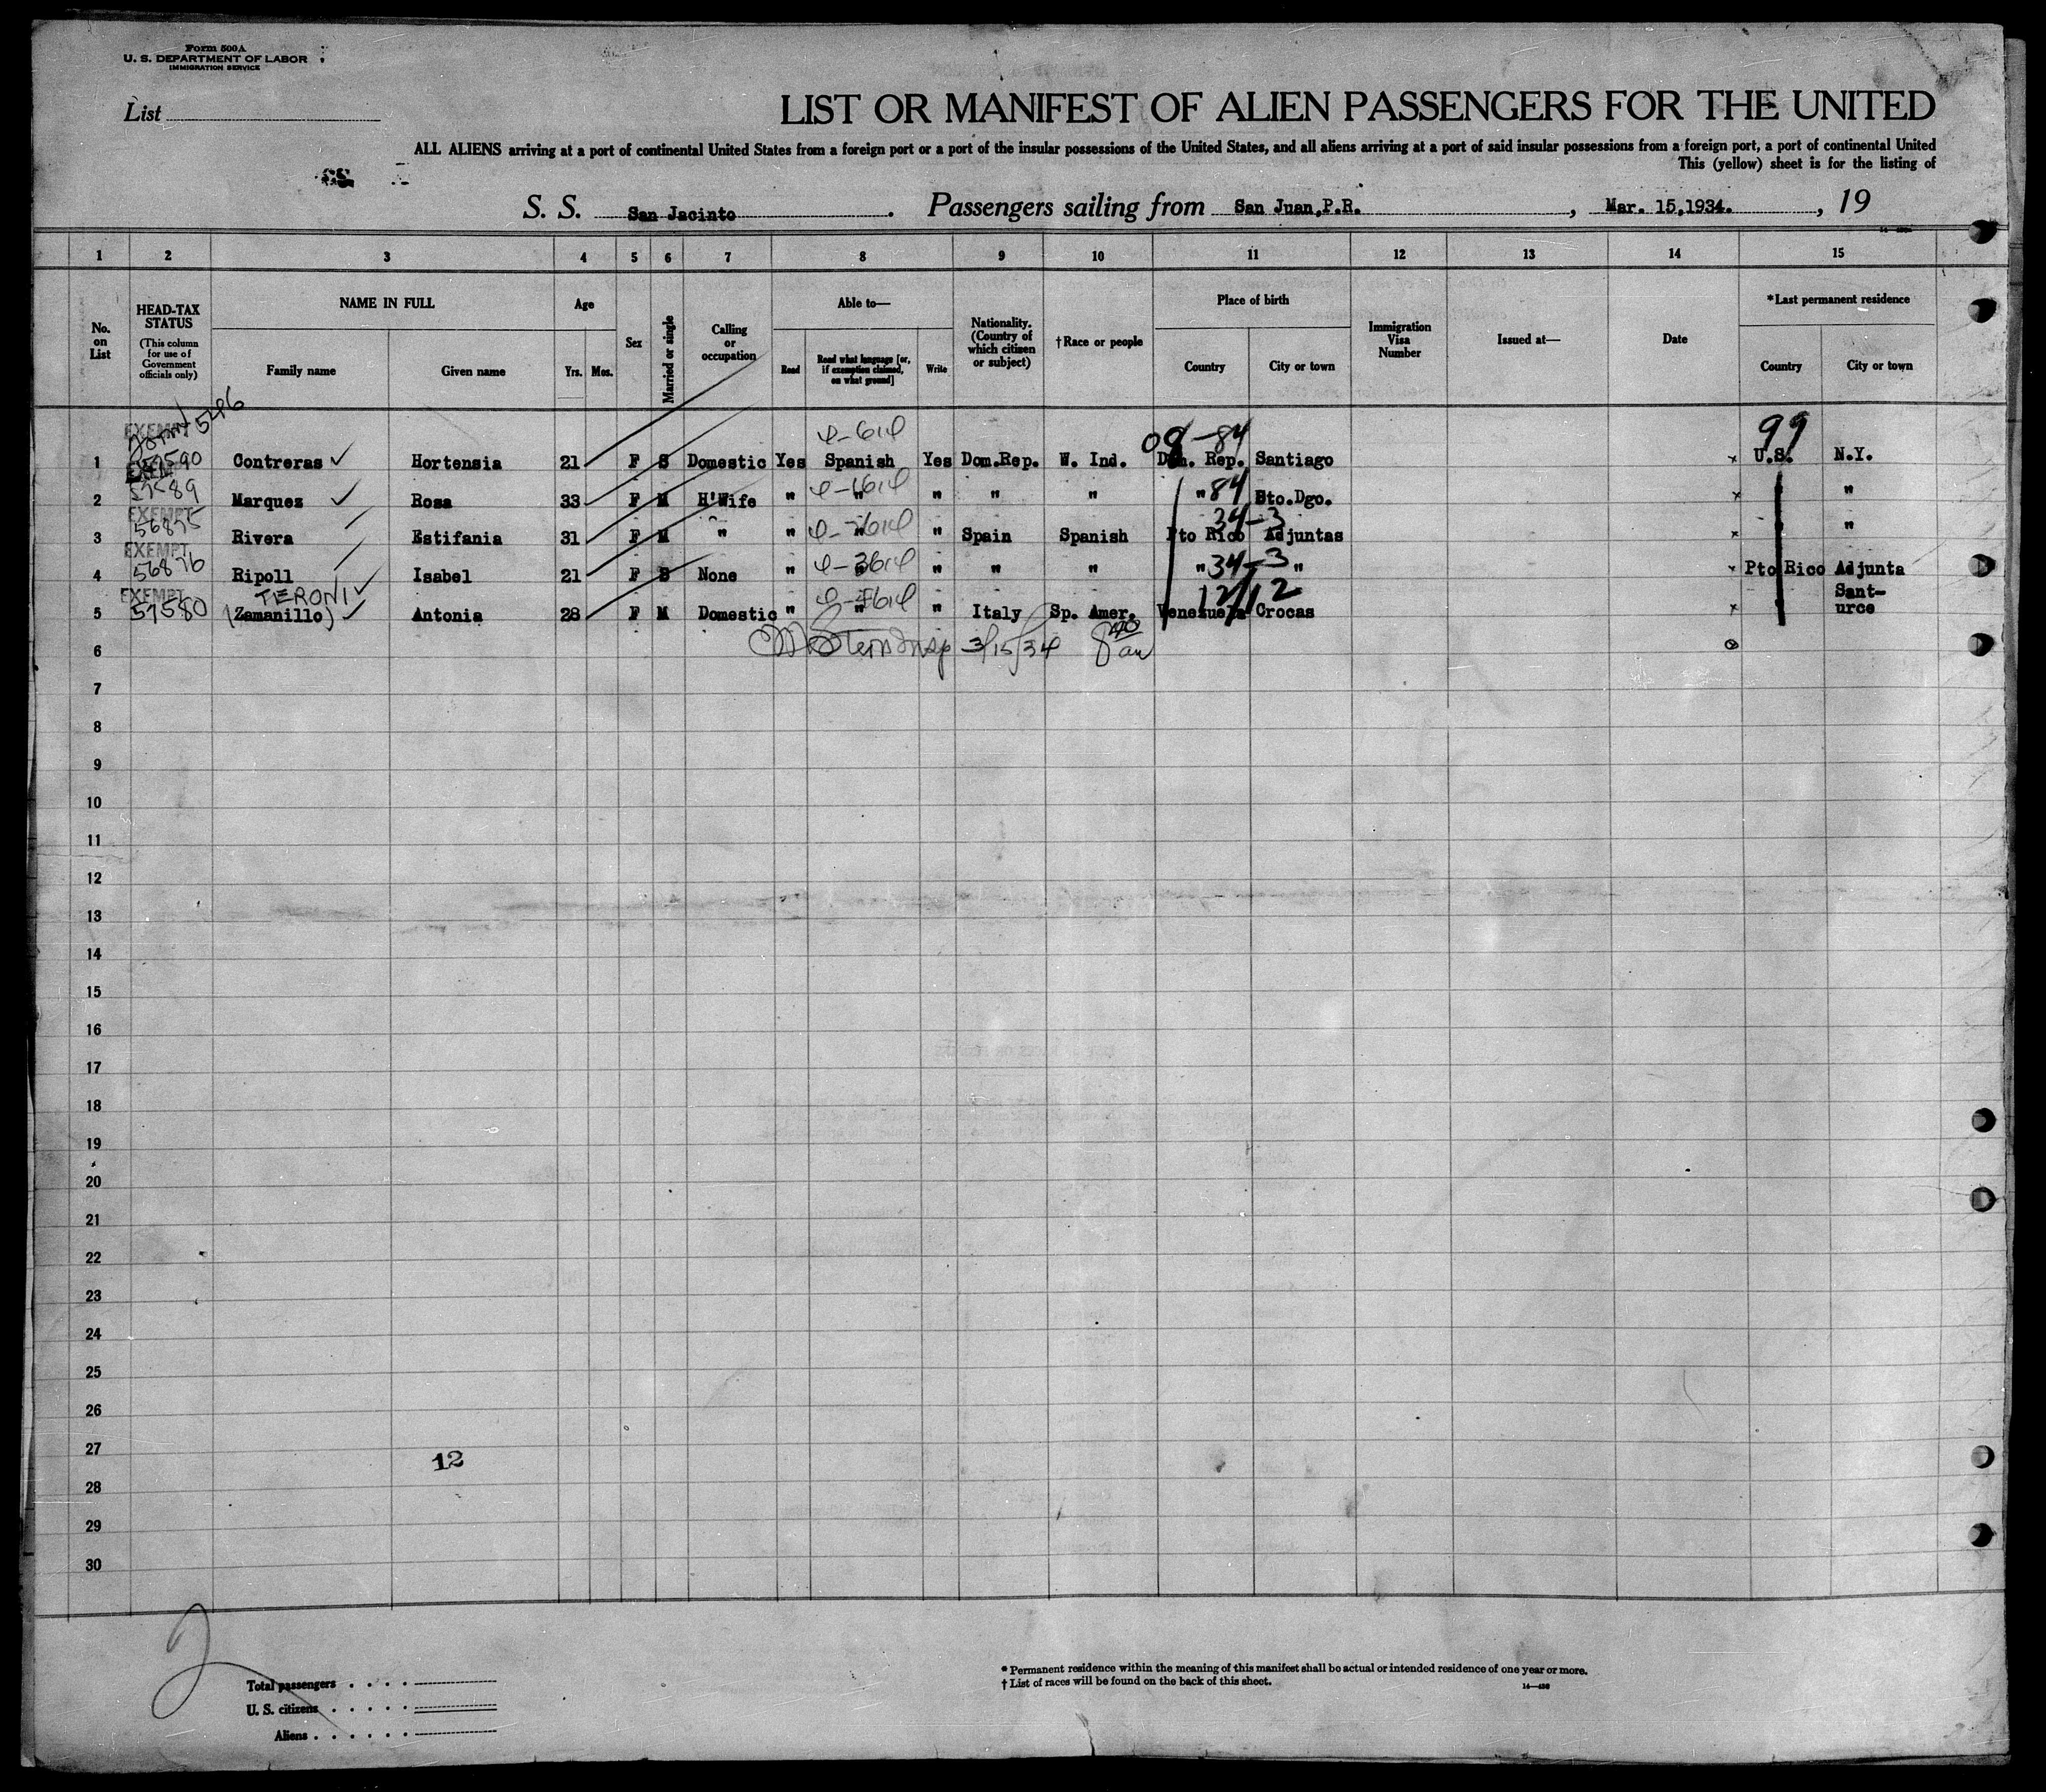 Form 500A
U. S. DEPARTMENT OF LABOR
IMMIGRATION SERVICE
List
LIST OR MANIFEST OF ALIEN PASSENGERS FOR THE UNITED
ALL ALIENS arriving at a port of continental United States from a foreign port or a port of the insular possessions of the United States, and all aliens arriving at a port of said insular possessions from a foreign port, a port of continental United
This (yellow) sheet is for the listing of
S. S. San Jacinto. Passengers sailing from San Juan,P.R., Mar. 15,1934., 19
1 2 3 4 5 6 7 8 9 10 11 12 13 14 15
No. on List
HEAD-TAX STATUS
(This column for use of Government officials only)
NAME IN FULL
Family name
Given name
Age
Yrs. Mos.
Sex
Married or single
Calling or occupation
Able to—
Read
Read what language [or, if exemption claimed, on what ground]
Write
Nationality. (Country of which citizen or subject)
†Race or people
Place of birth
Country
City or town
Immigration Visa Number
Issued at—
Date
*Last permanent residence
Country
City or town
5296
EXEMPT
4-614
09-84
99
1 Contreras ✓ Hortensia 21 F S Domestic Yes Spanish Yes Dom.Rep. W. Ind. Dom. Rep. Santiago x U.S. N.Y.
2 57589 Marquez ✓ Rosa 33 F M H'Wife " " " " " " 84 Sto.Dgo. x "
EXEMPT
34-3
3 56875 Rivera Estifania 31 F M " " " " Spain Spanish Pto Rico Adjuntas x "
EXEMPT
4 56876 Ripoll Isabel 21 F S None " " " " " " 34-3 " Pto Rico Adjunta
EXEMPT TERONI ✓ 12/12 Sant-
5 57580 (Zamanillo) ✓ Antonia 28 F M Domestic " " " Italy Sp. Amer. Venezuela Crocas x urce
6 Insp 3/15/34 8 40 am
7
8
9
10
11
12
13
14
15
16
17
18
19
20
21
22
23
24
25
26
27
12
28
29
30
2
Total passengers
U. S. citizens
Aliens
* Permanent residence within the meaning of this manifest shall be actual or intended residence of one year or more.
† List of races will be found on the back of this sheet.
14—430